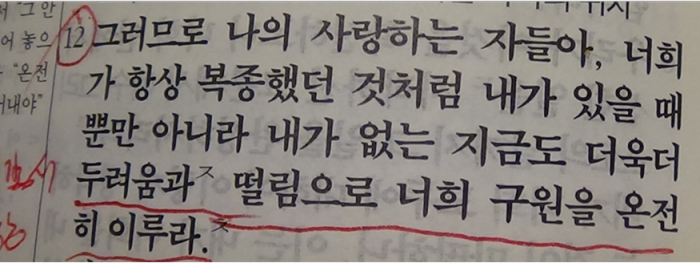 12 그러므로 나의 사랑하는 자들아, 너희
가 항상 복종했던 것처럼 내가 있을 때
뿐만 아니라 내가 없는 지금도 더욱더
두려움과ㅈ 떨림으로 너희 구원을 온전
히 이루라.ㅊ
어 놓으
"온전
내야"